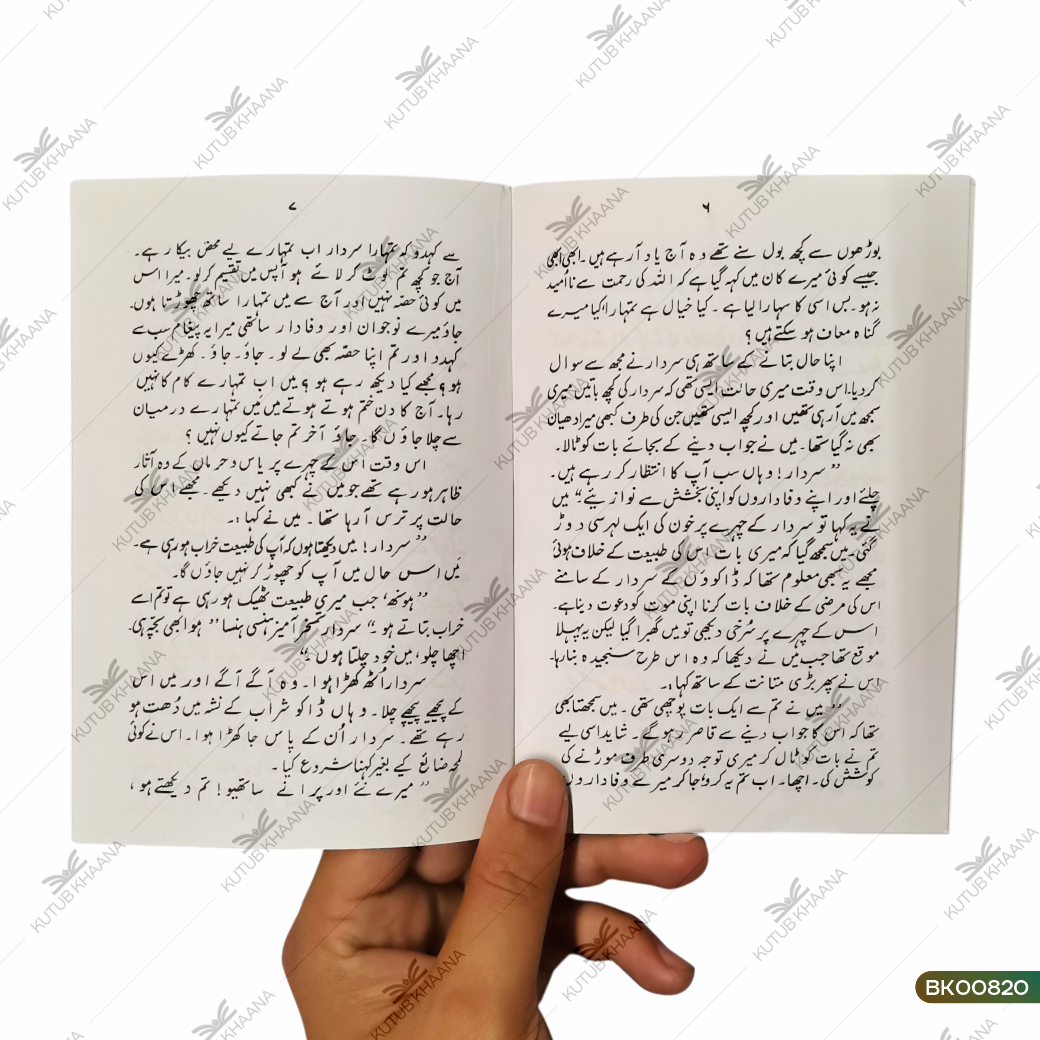 ۶
بوڑھوں سے کچھ بول سنے تھے وہ آج یاد آ رہے ہیں۔ ابھی ابھی
جیسے کوئی میرے کان میں کہہ گیا ہے کہ اللہ کی رحمت سے ناامید
نہ ہو۔ بس اسی کا سہارا لیا ہے۔ کیا خیال ہے تمہارا؟ کیا میرے
گناہ معاف ہو سکتے ہیں؟
اپنا حال بتانے کے ساتھ ہی سردار نے مجھ سے سوال
کر دیا۔ اس وقت میری حالت ایسی تھی کہ سردار کی کچھ باتیں میری
سمجھ میں آ رہی تھیں اور کچھ ایسی تھیں جن کی طرف کبھی میرا دھیان
بھی نہ گیا تھا۔ میں نے جواب دینے کے بجائے بات کو ٹالا۔
”سردار! وہاں سب آپ کا انتظار کر رہے ہیں۔
چلئے اور اپنے وفاداروں کو اپنی بخشش سے نوازیئے“ میں
نے یہ کہا تو سردار کے چہرے پر خون کی ایک لہر سی دوڑ
گئی۔ میں سمجھ گیا کہ میری بات اس کی طبیعت کے خلاف ہوئی
مجھے یہ بھی معلوم تھا کہ ڈاکوؤں کے سردار کے سامنے
اس کی مرضی کے خلاف بات کرنا اپنی موت کو دعوت دینا ہے۔
اس کے چہرے پر سُرخی دیکھی تو میں گھبرا گیا لیکن یہ پہلا
موقع تھا جب میں نے دیکھا کہ وہ اس طرح سنجیدہ بنا رہا۔
اس نے پھر بڑی متانت کے ساتھ کہا:۔
”میں نے تم سے ایک بات پوچھی تھی۔ میں سمجھتا بھی
تھا کہ اس کا جواب دینے سے قاصر رہو گے۔ شاید اسی لیے
تم نے بات کو ٹال کر میری توجہ دوسری طرف موڑنے کی
کوشش کی۔ اچھا۔ اب تم یہ کرو؛ جا کر میرے وفادار
۷
سے کہدو کہ تمہارا سردار اب تمہارے لیے محض بیکار ہے۔
آج جو کچھ تم لوٹ کر لائے ہو آپس میں تقسیم کر لو۔ میرا اس
میں کوئی حصہ نہیں اور آج سے میں تمہارا ساتھ چھوڑتا ہوں۔
جاؤ میرے نوجوان اور وفادار ساتھی میرا یہ پیغام سب سے
کہدو اور تم اپنا حصہ بھی لے لو۔ جاؤ۔ جاؤ۔ کھڑے کیوں
ہو؟ مجھے کیا دیکھ رہے ہو؟ میں اب تمہارے کام کا نہیں
رہا۔ آج کا دن ختم ہوتے ہوتے میں تمہارے درمیان
سے چلا جاؤں گا۔ جاؤ آخر تم جاتے کیوں نہیں؟
اس وقت اس کے چہرے پر یاس و حرمان کے وہ آثار
ظاہر ہو رہے تھے جو میں نے کبھی نہیں دیکھے۔ مجھے اس کی
حالت پر ترس آ رہا تھا۔ میں نے کہا:۔
”سردار! میں دیکھتا ہوں کہ آپ کی طبیعت خراب ہو رہی ہے۔
میں اس حال میں آپ کو چھوڑ کر نہیں جاؤں گا۔
”ہونھ، جب میری طبیعت ٹھیک ہو رہی ہے تو تم اسے
خراب بتاتے ہو۔“ سردار تمسخر آمیز ہنسی ہنسا ”ہو ابھی بچے ہی۔
اچھا چلو، میں خود چلتا ہوں۔“
سردار اُٹھ کھڑا ہوا۔ وہ آگے آگے اور میں اس
کے پیچھے پیچھے چلا۔ وہاں ڈاکو شراب کے نشہ میں دُھت ہو
رہے تھے۔ سردار اُن کے پاس جا کھڑا ہوا۔ اس نے کوئی
لمحہ ضائع کیے بغیر کہنا شروع کیا۔
”میرے نئے اور پرانے ساتھیو! تم دیکھتے ہو،
KUTUB KHAANA
BK00820